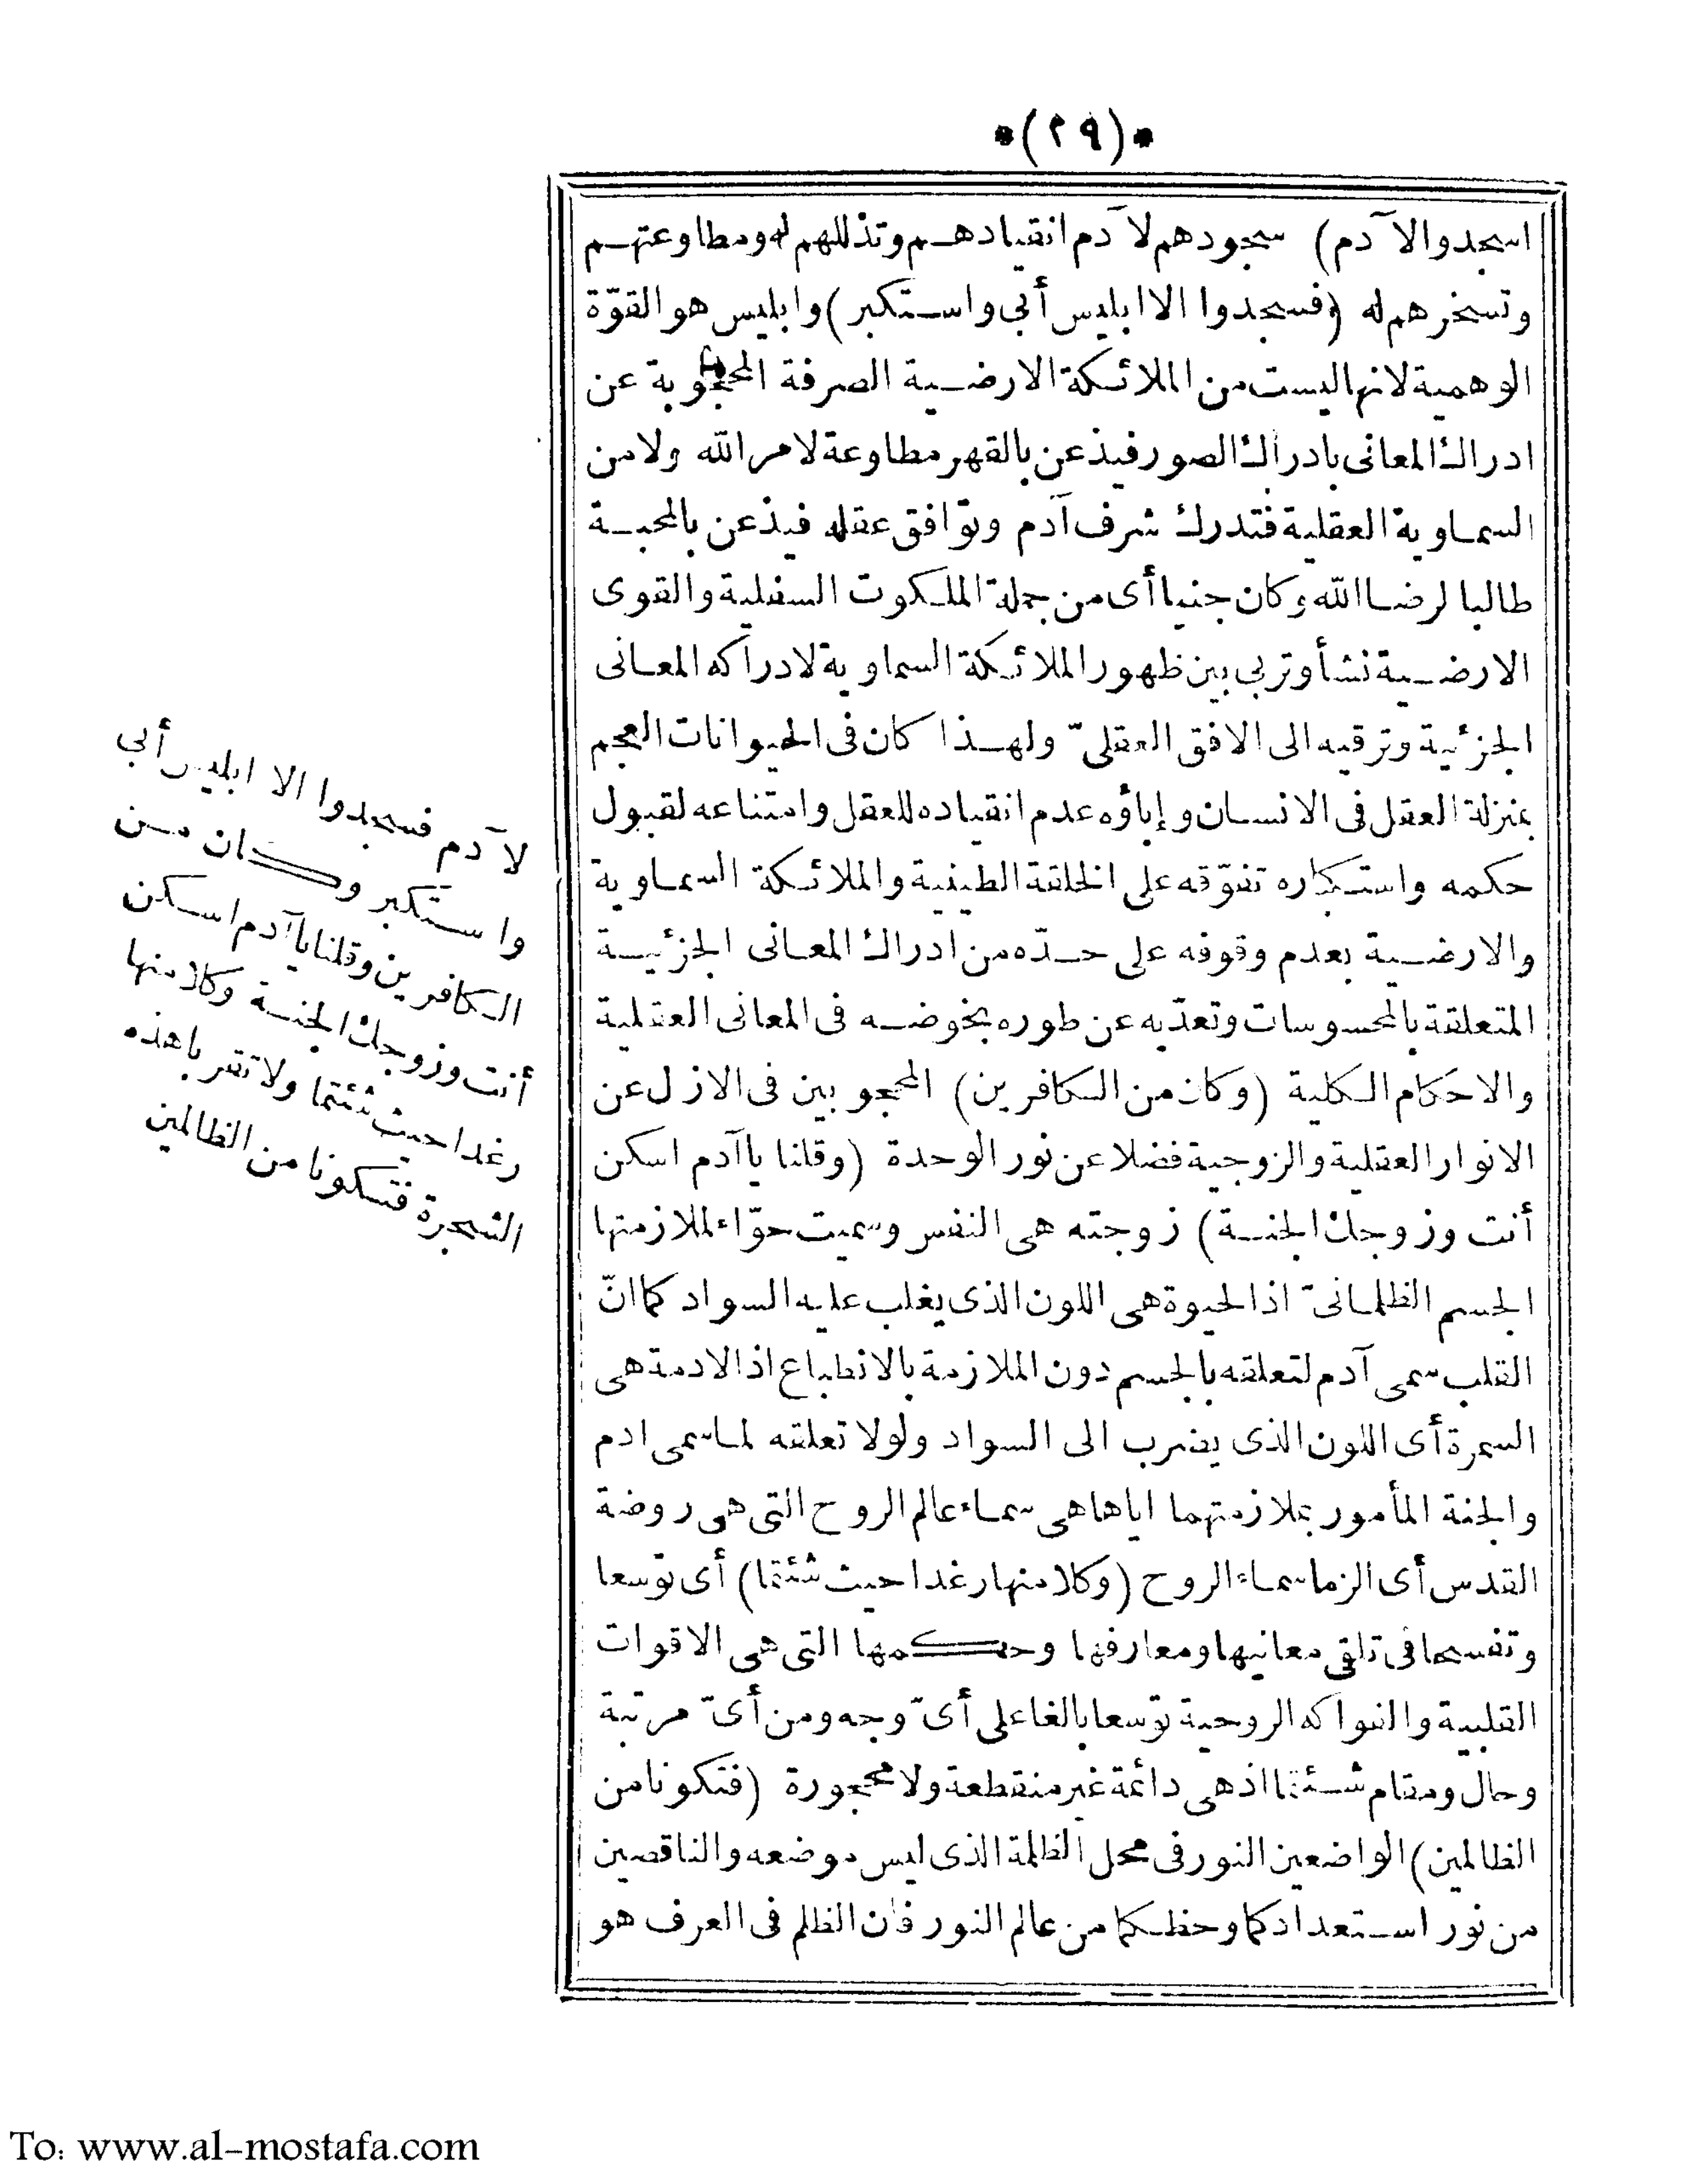 *(٢٩)*
اسجدوا لآدم) سجودهم لآدم انقيادهم وتذللهم له ومطاوعتهم
وتسخرهم له (فسجدوا الا ابليس أبى واستكبر) وابليس هو القوّة
الوهمية لانها ليست من الملائكة الارضية الصرفة المحجوبة عن
ادراك المعانى بادراك الصور فيذعن بالقهر مطاوعة لامر الله ولا من
السماوية العقلية فتدرك شرف آدم وتوافق عقله فيذعن بالمحبة
طالبا لرضا الله وكان جنيا أى من جملة الملكوت السفلية والقوى
الارضية نشأ وتربى بين ظهور الملائكة السماوية لادراكه المعانى
الجزئية وترقيه الى الافق العقلىّ ولهذا كان فى الحيوانات العجم
بمنزلة العقل فى الانسان وإباؤه عدم انقياده للعقل وامتناعه لقبول
حكمه واستكباره تفوّقه على الخلقة الطينية والملائكة السماوية
والارضية بعدم وقوفه على حدّه من ادراك المعانى الجزئية
المتعلقة بالمحسوسات وتعدّيه عن طوره بخوضه فى المعانى العقلية
والاحكام الكلية (وكان من الكافرين) المحجوبين فى الازل عن
الانوار العقلية والزوجية فضلا عن نور الوحدة (وقلنا ياآدم اسكن
أنت وزوجك الجنة) زوجته هى النفس وسميت حوّاء لملازمتها
الجسم الظلمانىّ اذ الحيوة هى اللون الذى يغلب عليه السواد كما انّ
القلب سمى آدم لتعلقه بالجسم دون الملازمة بالانطباع اذ الادمة هى
السمرة أى اللون الذى يضرب الى السواد ولولا تعلقه لما سمى ادم
والجنة المأمور بملازمتهما اياها هى سماء عالم الروح التى هى روضة
القدس أى الزما سماء الروح (وكلا منها رغدا حيث شئتما) أى توسعا
وتفسحا فى تلقى معانيها ومعارفها وحكمها التى هى الاقوات
القلبية والفواكه الروحية توسعا بالغا على أىّ وجه ومن أىّ مرتبة
وحال ومقام شئتما اذ هى دائمة غير منقطعة ولا محجورة (فتكونا من
الظالمين) الواضعين النور فى محل الظلمة الذى ليس موضعه والناقصين
من نور استعدادكما وحظكما من عالم النور فان الظلم فى العرف هو
لآدم فسجدوا الا ابليس أبى
واستكبر وكان من
الكافرين وقلنا ياآدم اسكن
أنت وزوجك الجنة وكلا منها
رغدا حيث شئتما ولا تقربا هذه
الشجرة فتكونا من الظالمين
To: www.al-mostafa.com